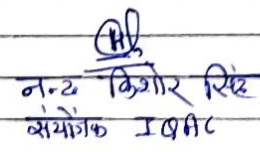 नन्द किशोर सिंह
संयोजक IQAC